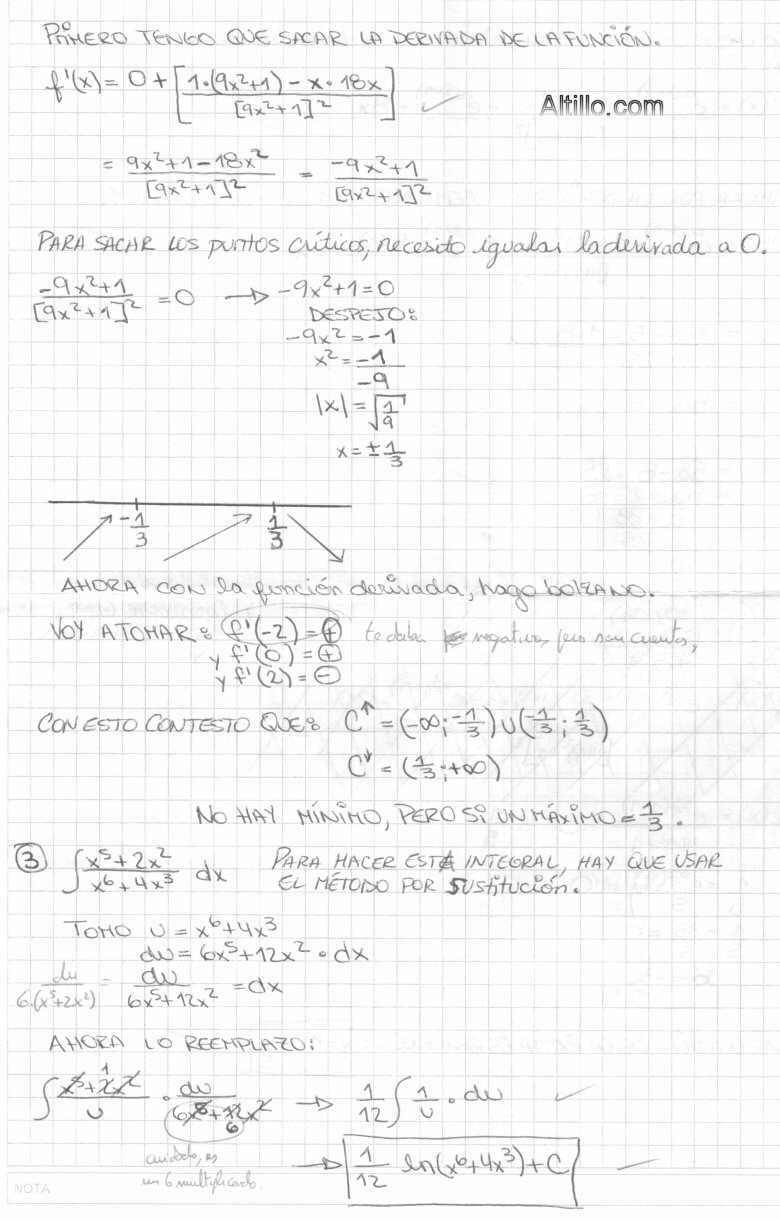 PRIMERO TENGO QUE SACAR LA DERIVADA DE LA FUNCIÓN.
f'(x) = 0 + [1·(9x²+1) − x·18x / [9x²+1]²] ✓
Altillo.com
= 9x²+1−18x² / [9x²+1]² = −9x²+1 / [9x²+1]²
PARA SACAR LOS PUNTOS CRÍTICOS, necesito igualar la derivada a 0.
−9x²+1 / [9x²+1]² = 0 → −9x²+1=0
DESPEJO:
−9x² = −1
x² = −1 / −9
|x| = √(1/9)
x = ± 1/3
−1/3 1/3
AHORA CON la función derivada, hago bolzano.
VOY A TOMAR: f'(−2) = ⊕ te daba negativo,
y f'(0) = ⊕
y f'(2) = ⊖
CON ESTO CONTESTO QUE: C↑ = (−∞; −1/3) ∪ (−1/3; 1/3)
C↓ = (1/3; +∞)
NO HAY MÍNIMO, PERO SÍ UN MÁXIMO = 1/3.
③ ∫ x⁵+2x² / x⁶+4x³ dx PARA HACER ESTA INTEGRAL, HAY QUE USAR
EL MÉTODO POR SUSTITUCIÓN.
TOMO U = x⁶+4x³
du = 6x⁵+12x² · dx
du / 6.(x⁵+2x²) = du / 6x⁵+12x² = dx
AHORA LO REEMPLAZO:
∫ x⁵+2x² / U · du / 6x⁵+12x² → 1/12 ∫ 1/U · du ✓
1
6
cuidado, es
un 6 multiplicando.
→ 1/12 ln(x⁶+4x³)+C
NOTA